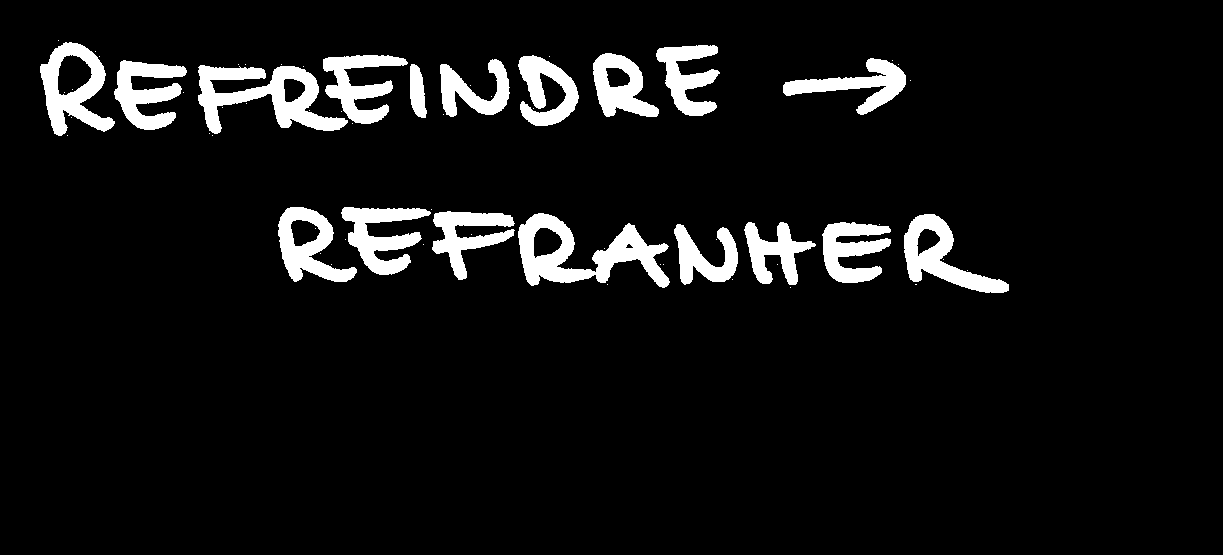 REFREINDRE →
REFRANHER